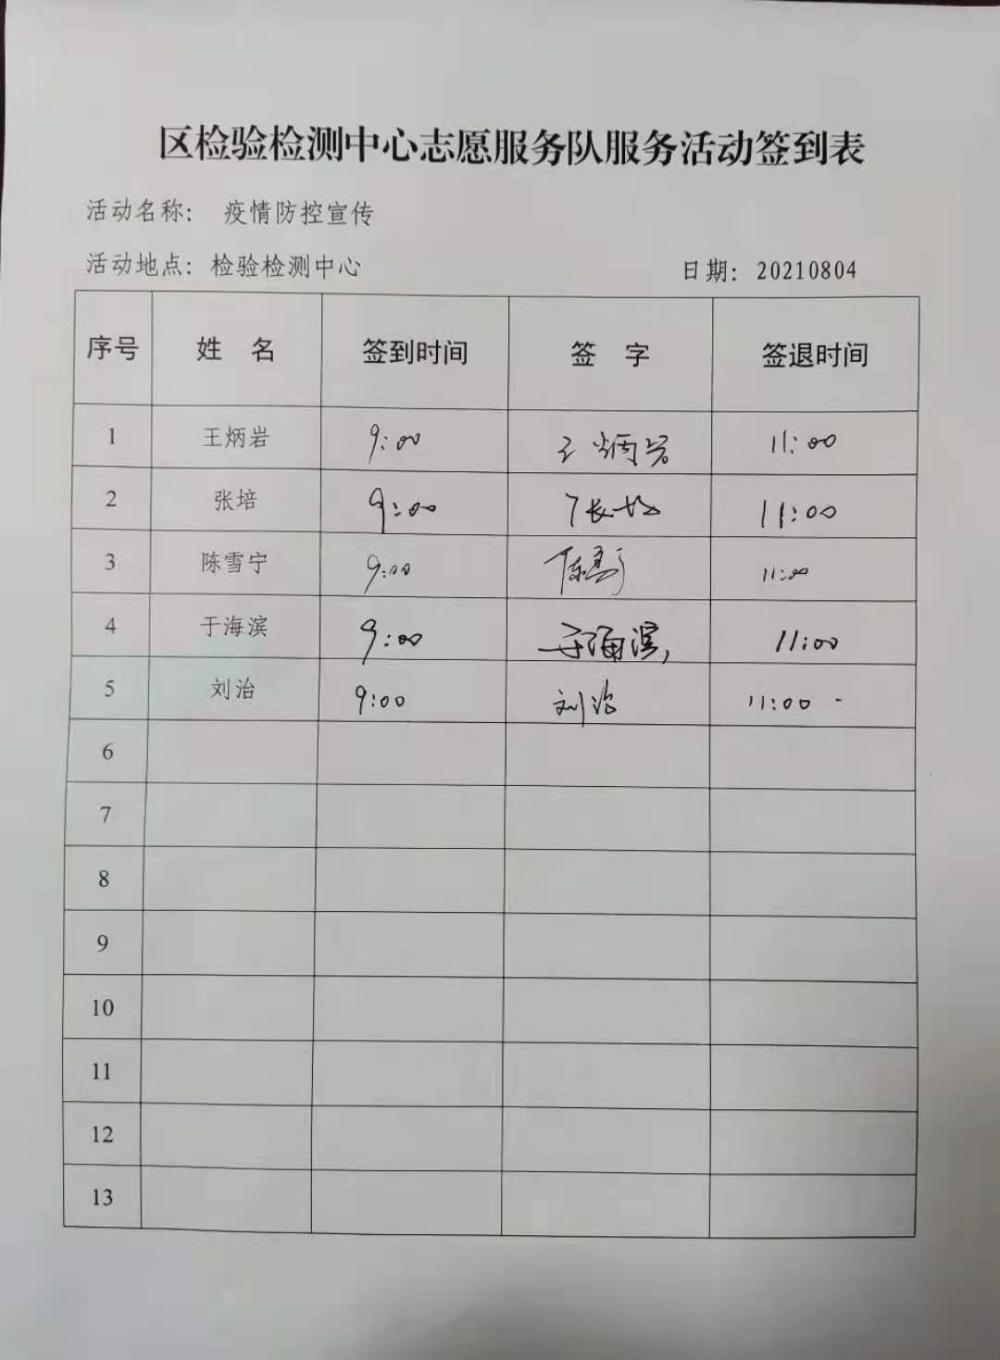 区检验检测中心志愿服务队服务活动签到表
活动名称： 疫情防控宣传
活动地点：检验检测中心 日期：20210804
序号 姓 名 签到时间 签 字 签退时间
1 王炳岩 9:00 王炳岩 11:00
2 张培 9:00 张培 11:00
3 陈雪宁 9:00 陈雪宁 11:00
4 于海滨 9:00 于海滨 11:00
5 刘治 9:00 刘治 11:00
6
7
8
9
10
11
12
13